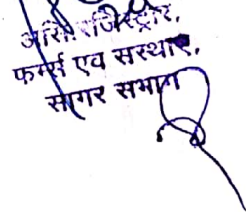 असि. रजिस्ट्रार,
फर्म्स एवं संस्थाएं,
सागर संभाग